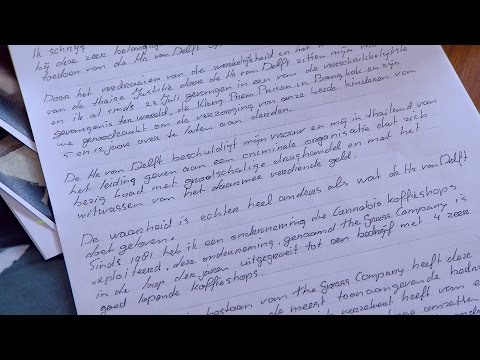 Ik schrijf
bij deze zeer belangrij
toedoen van de Hr van Delft
Door het verdraaien van de werkelijkheid en het
van de thaise Justitie door de Hr van Delft zitten mijn
en ik al sinds 22 Juli gevangen in een van de verschrikkelijkste
gevangenis ter wereld, de Klong Prem Prison in Bangkok en zijn
we genoodzaakt om de verzorging van onze beide kinderen van
5 en 12 jaar over te laten aan derden.
De Hr van Delft beschuldigt mijn vrouw en mij in thailand van
het leiding geven aan een criminele organisatie dat zich
bezig houd met grootschalige drugshandel en met het
witwassen van het daarmee verdiende geld.
De waarheid is echter heel anders als wat de Hr van Delft
doet geloven.
Sinds 1981 heb ik een onderneming die Cannabis koffieshops
exploiteerd, deze onderneming, genaamd the Grass Company is
in de loop der jaren uitgegroeid tot een bedrijf met 4 zeer
goed lopende koffieshops.
bestaan van the Grass Company heeft deze
de meest toonaangevende bedrij
verzekert heeft van e
omzette